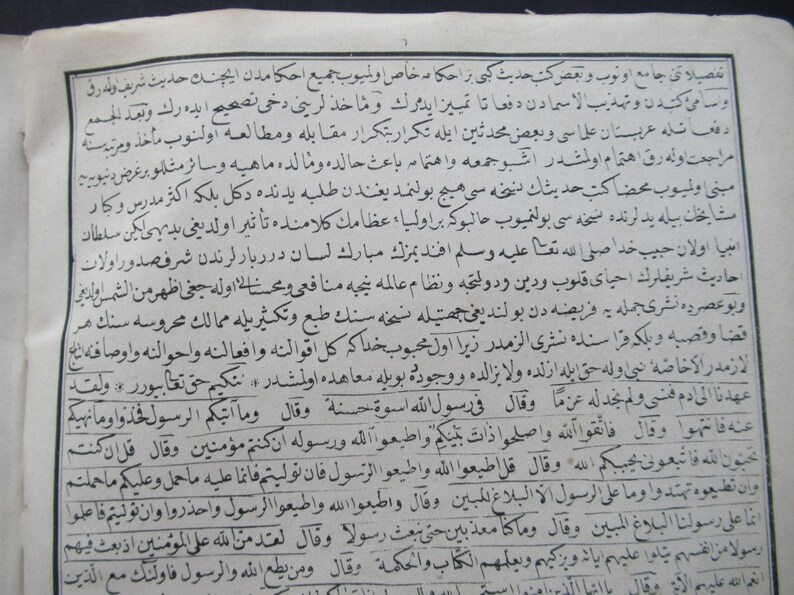 ٦
تفصيلاتنى جامع اولوب وبعض كتب حديث كبى بر احكامه خاص اولميوب جميع احكامدن ايچنك حديث شريف اوله رق
واسامى كتبدن وتهذيب الاسمادن دفعاتا تمييز ايدرك ومأخذلرينى دخى تصحيح ايده رك وبعد الجمع
دفعاتله عربستان علماسى وبعض محدثين ايله تكرار بتكرار مقابله ومطالعه اولنوب مأخذ ومرتبسنه
مراجعت اوله رق اهتمام اولمشدر اشبو جمعه واهتمامه باعث حالده ومالده ماهيه وسائر مثللو بر غرض دنيويه يه
مبنى اولميوب محضا كتب حديثك نسخه سى هيچ بولنمديغندن طلبه يدنده دكل بلكه اكثر مدرس وكبار
مشايخك بيله يدلرنده نسخه سى بولنميوب حالبوكه بر اولياء عظامك كلامنده تأثير اولديغى بديهى ليكن سلطان
انبيا اولان حبيب خدا صلى الله تعا عليه وسلم افنديمزك مبارك لسان درربارلرندن شرفصدور اولان
احاديث شريفه لرك احياى قلوب ودين ودولتجه ونظام عالمه نتيجه منافعى ومحسناتى اوله جغى اظهر من الشمس اولديغى
وبو عصرده نشرى جمله يه فريضه دن بولنديغى جهتيله نسخه سنك طبع وتكثيريله ممالك محروسه سنك هر
قضا وقصبه وبلكه قراسنده نشرى الزمدر زيرا اول محبوب خداكه كل اقوالنه وافعالنه واحوالنه واوصافنه اتباع
لازمدر الاخاصة نبى وله حتى ايله ازلده ولا يزالده ووجوده بويله معاهده اولمشدر * نتكيم حق تعا بيورر * ولقد
عهدنا الى ادم فنسى ولم نجد له عزما وقال فى رسول الله اسوة حسنة وقال وما آتيكم الرسول فخذوا وما نهيكم
عنه فانتهوا وقال فاتقوا الله واصلحوا ذات بينكم واطيعوا الله ورسوله ان كنتم مؤمنين وقال قل ان كنتم
تحبون الله فاتبعونى يحببكم الله وقال قل اطيعوا الله واطيعوا الرسول فان توليتم فانما عليه ما حمل وعليكم ما حملتم
وان تطيعوه تهتدوا وما على الرسول الا البلاغ المبين وقال واطيعوا الله واطيعوا الرسول واحذروا وان توليتم فاعلموا
انما على رسولنا البلاغ المبين وقال وما كنا معذبين حتى نبعث رسولا وقال لقد من الله على المؤمنين اذ بعث فيهم
رسولا من انفسهم يتلوا عليهم اياته ويزكيهم ويعلمهم الكتاب والحكمة وقال ومن يطع الله والرسول فاولئك مع الذين
انعم الله عليهم الآية وقال يا ايها الذين امنوا